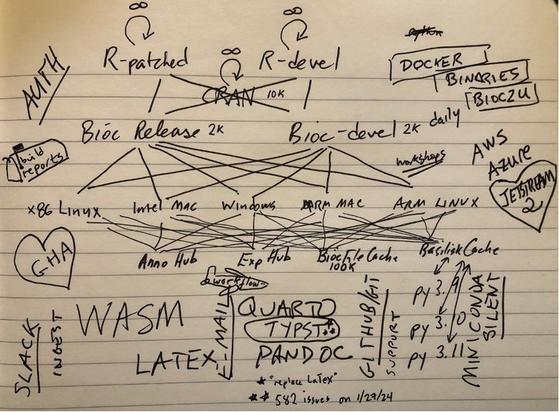 ∞ ∞
R-patched R-devel
∞
CRAN 10K
AUTH
DOCKER
BINARIES
BIOC2U
Bioc Release 2K
Bioc-devel 2K daily
build
reports
workshops
AWS
Azure
JETSTREAM
2
x86 Linux Intel MAC Windows ARM MAC ARM LINUX
GHA
Anno Hub Exp Hub Biocfile Cache Basilisk Cache
100K
workflows
WASM
LATEX
E-MAIL
QUARTO
TYPST**
PANDOC
GITHUB/GIT
SUPPORT
py 3.9
py 3.10
py 3.11
MINICONDA
SILENT
SLACK
INGEST
* "replace LaTeX"
** 582 issues on 1/27/24